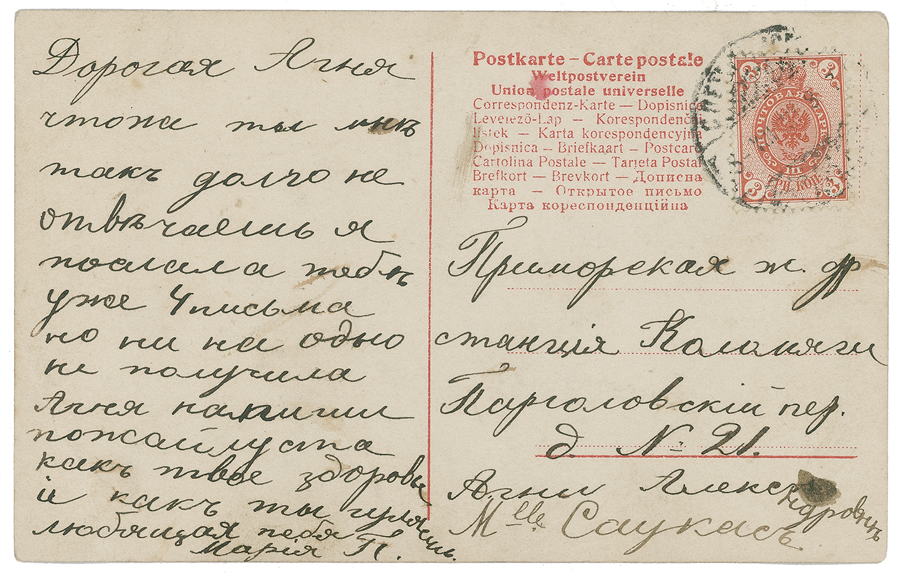 Дорогая Агня
чтожа ты мнѣ
такъ долго не
отвѣчаешь я
послала тебѣ
уже 4 письма
но ни на одно
не получила
Агня напиши
пожайлуста
какъ твое здоровье
и какъ ты гуляешь.
любящая тебя
Марія П.
Postkarte – Carte postale
Weltpostverein
Union postale universelle
Correspondenz-Karte — Dopisnice
Levelező-Lap — Korespondenčn
listek — Karta korespondencyjna
Dopisnica — Briefkaart — Postcard
Cartolina Postale — Tarjeta Postal
Brefkort — Brevkort — Дописна
карта — Открытое письмо
Карта кореспонденційна
3 3
ПОЧТОВАЯ МАРКА
III
3 ТРИ КОП. 3
Приморская ж. др
станція Коломяги
Парголовскій пер.
д. № 21.
Агни Александровнѣ
Mlle Саукасъ